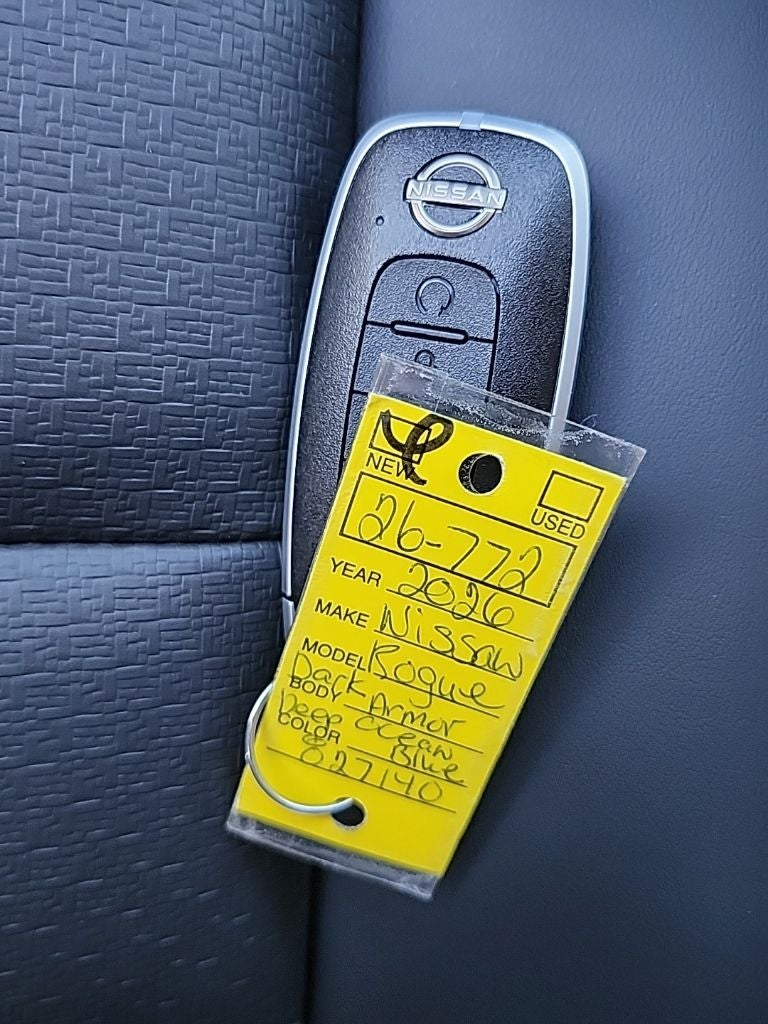 NISSAN
NEW
USED
26-772
YEAR 2026
MAKE Nissan
MODEL Rogue
Dark Armor
BODY
Deep Ocean Blue
COLOR
827140